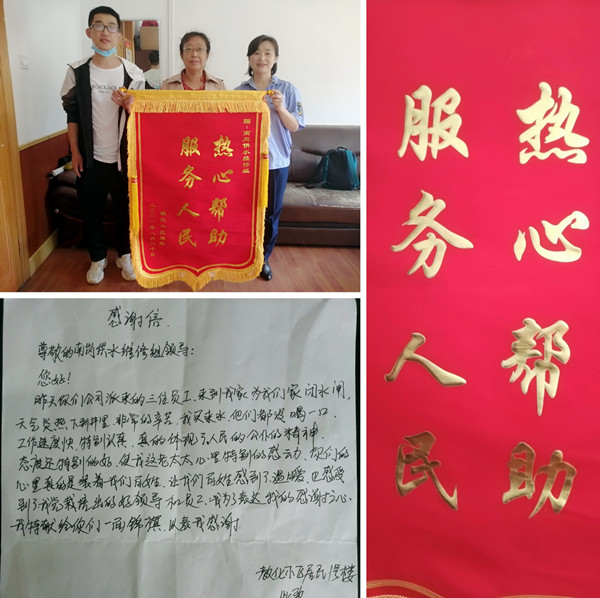 赠:南岗供水维修组
热心帮助
服务人民
感谢信.
尊敬的南岗供水维修组领导:
您好!
昨天你们公司派来的三位员工,来到我家为我们家闭水闸,
天气炎热下到井里,非常的辛苦,我买来水他们都没喝一口,
工作速度快,特别认真,真的体现了人民的公仆的精神,
态度还特别的好,使我这老太太心里特别的感动,你们的
心里真的是装着我们百姓,让我们百姓感到了温暖,也感受
到了我党栽培出的好领导和员工,我为了表达我的感谢之心,
我特献给你们一面锦旗,以表我感谢.
教化小区居民 楼
热心帮助
服务人民